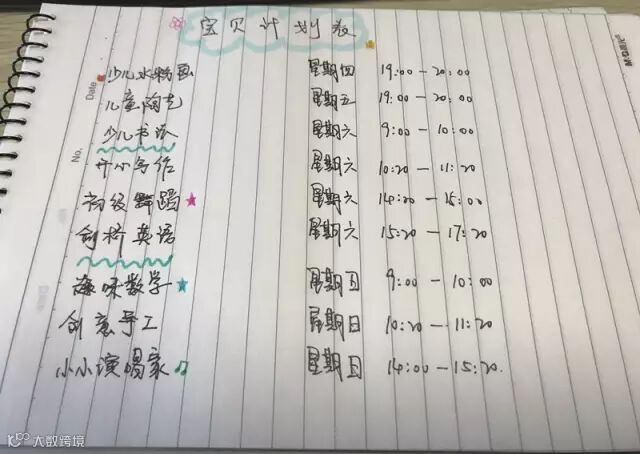 宝贝计划表
少儿水粉画 星期四 19:00-20:00
儿童陶艺 星期五 19:00-20:00
少儿书法 星期六 9:00-10:00
开心写作 星期六 10:20-11:20
初级舞蹈 星期六 14:00-15:00
剑桥英语 星期六 15:20-17:20
趣味数学 星期日 9:00-10:00
创意手工 星期日 10:20-11:20
小小演唱家 星期日 14:00-15:20.
Date
No.
M&G晨光
大数跨境